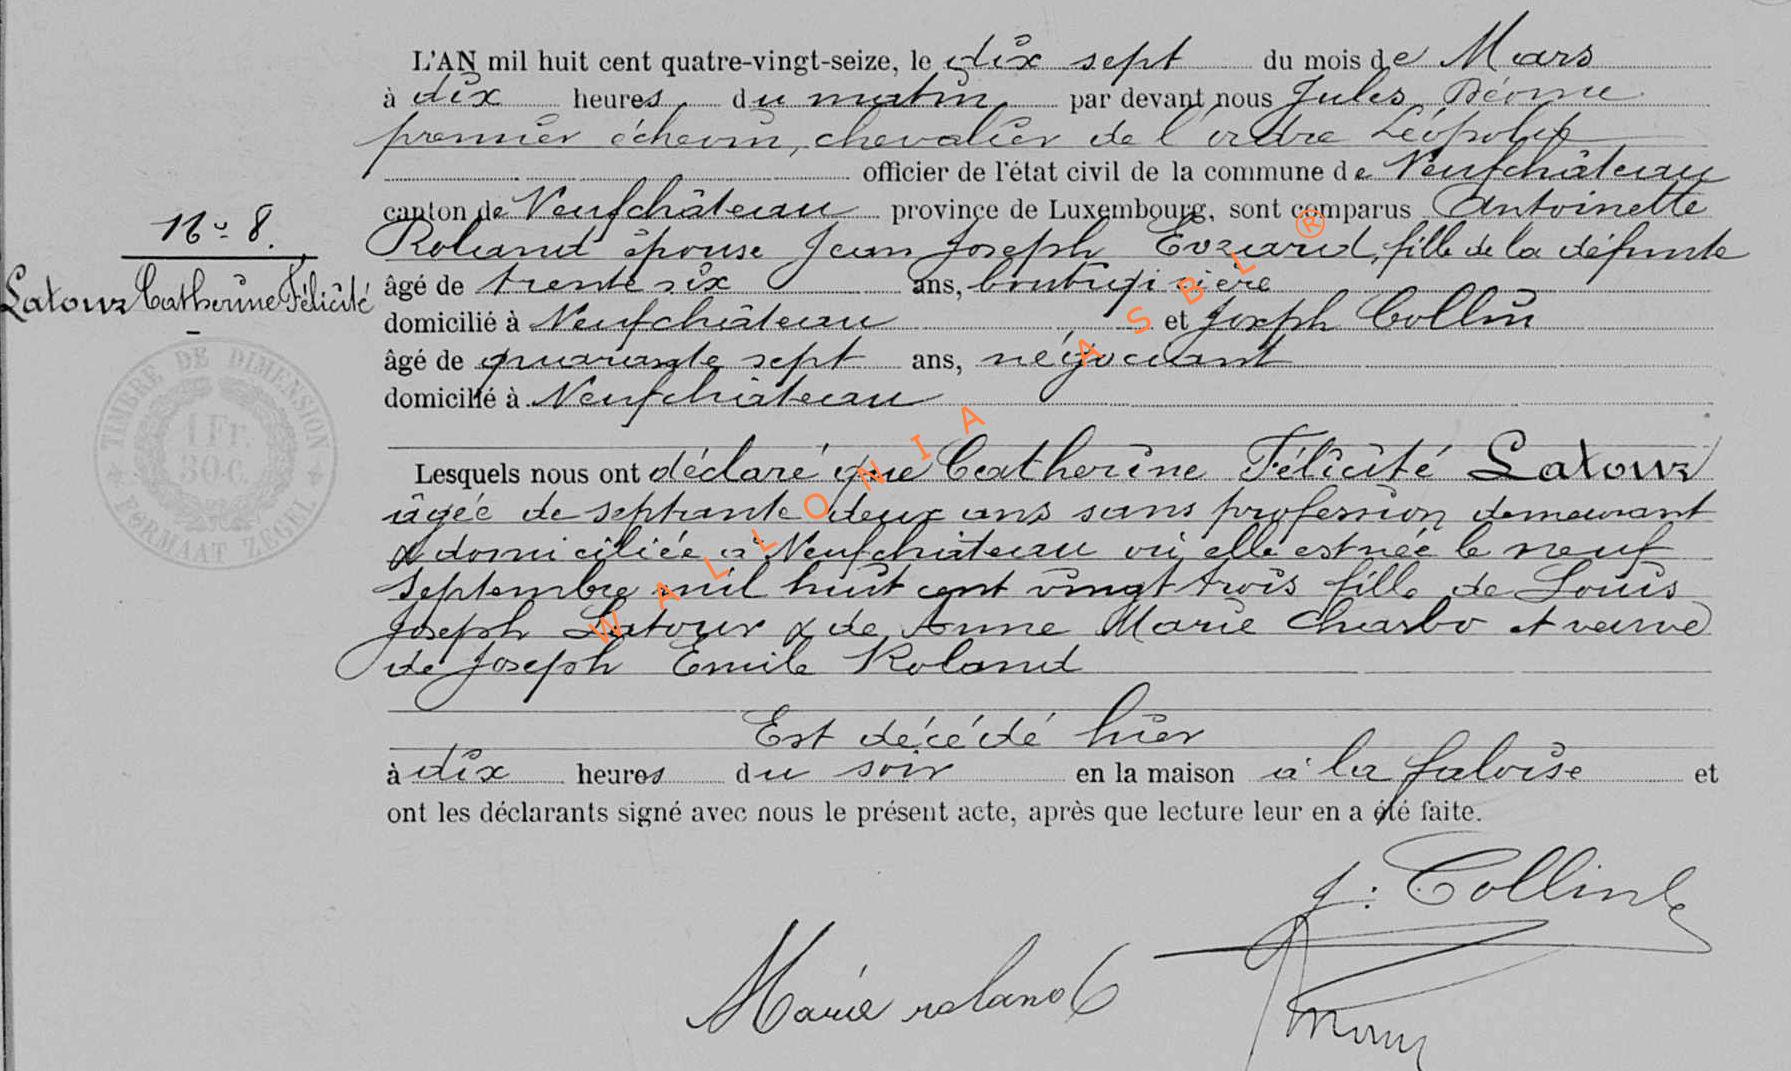 L'AN mil huit cent quatre-vingt-seize, le dix sept du mois de Mars
à dix heures du matin par devant nous Jules
premier échevin, chevalier de l'ordre Léopold
officier de l'état civil de la commune de Neufchâteau
canton de Neufchâteau province de Luxembourg, sont comparus Antoinette
Roland épouse Jean Joseph Evrard, fille de la défunte
N° 8.
Latour Catherine Félicité
âgé de trente six ans, boutiquière
domicilié à Neufchâteau et Joseph Collin
âgé de quarante sept ans, négociant
domicilié à Neufchâteau
TIMBRE DE DIMENSION
1 Fr.
30 c.
FORMAAT ZEGEL
Lesquels nous ont déclaré que Catherine Félicité Latour
âgée de septante deux ans sans profession demeurant
& domiciliée à Neufchâteau où elle est née le neuf
Septembre mil huit cent vingt trois fille de Louis
Joseph Latour & de Anne Marie Charbo et veuve
de Joseph Emile Roland
Est décédé hier
à dix heures du soir en la maison à la faloise et
ont les déclarants signé avec nous le présent acte, après que lecture leur en a été faite.
J. Collin
Marie roland
WALLONIA ASBL ®